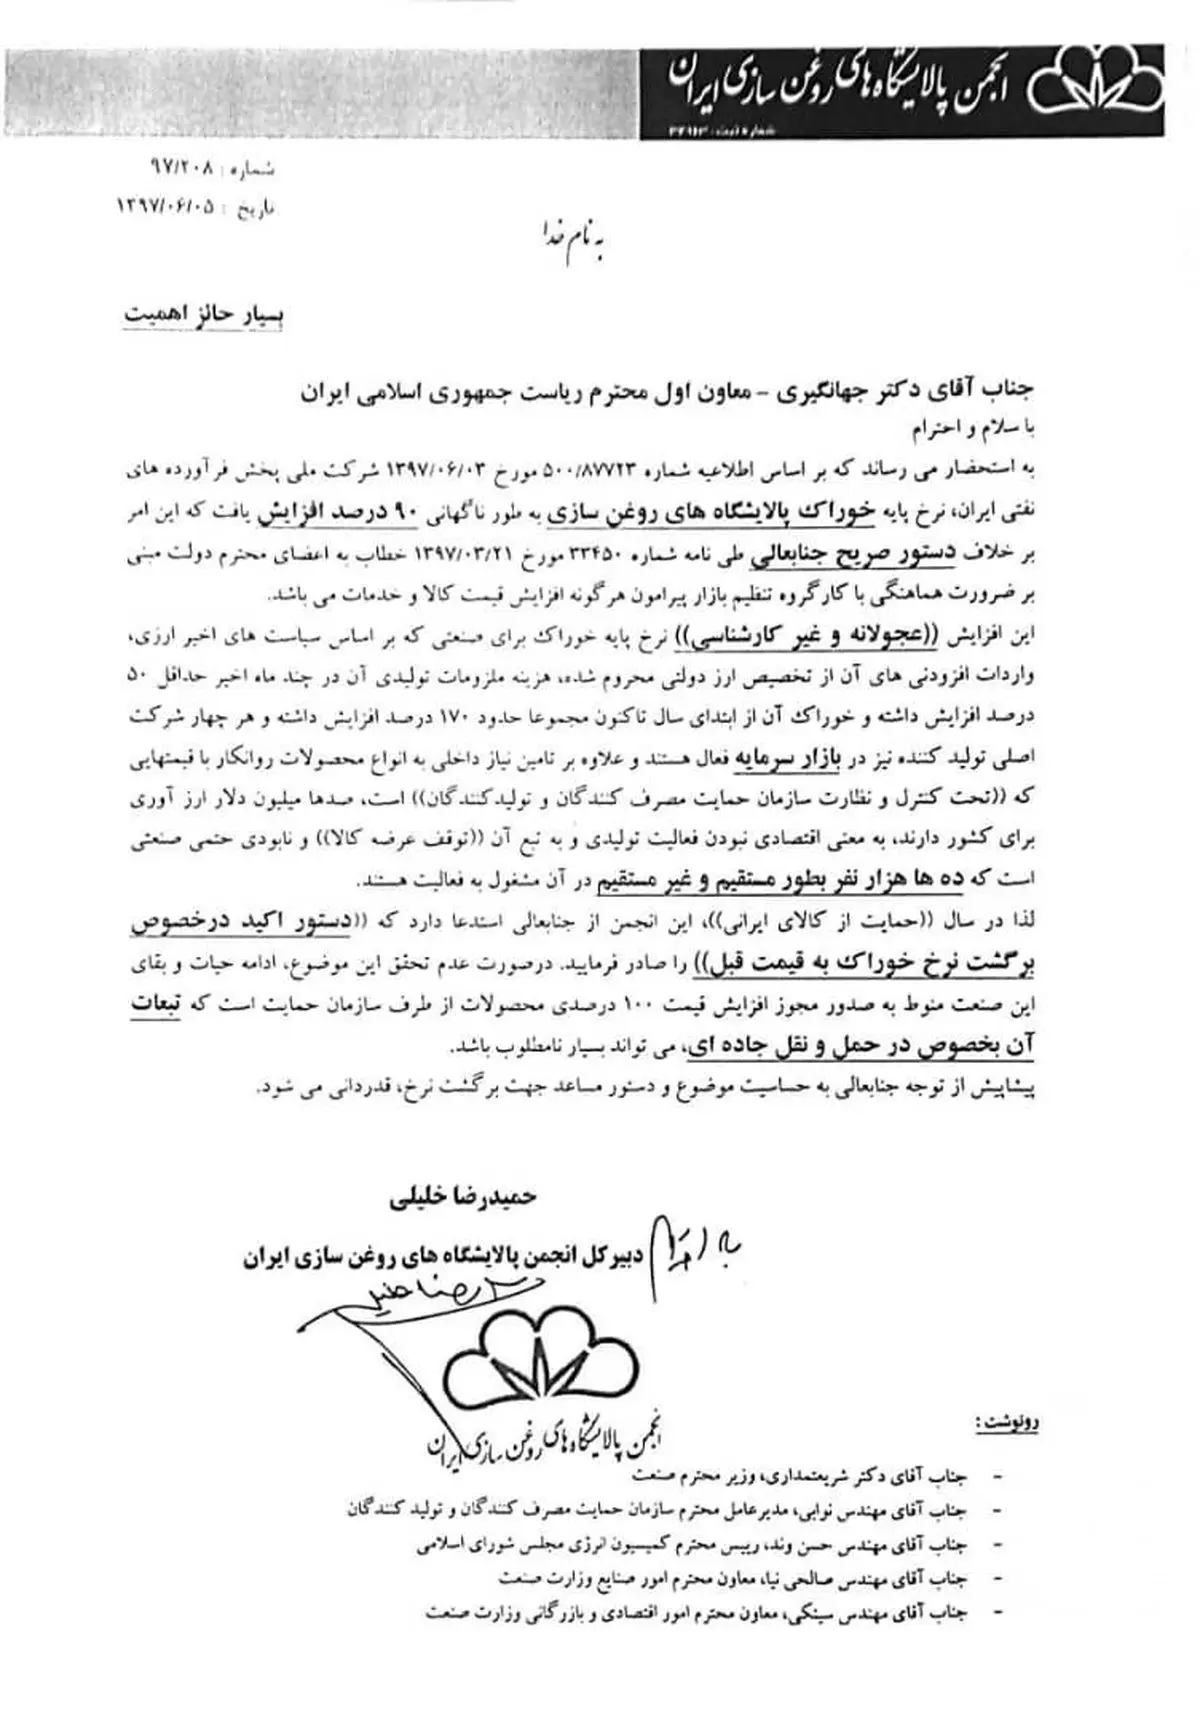 انجمن پالایشگاه های روغن سازی ایران
شماره : ۹۷/۲۰۸
تاریخ : ۱۳۹۷/۰۶/۰۵
به نام خدا
بسیار حائز اهمیت
جناب آقای دکتر جهانگیری – معاون اول محترم ریاست جمهوری اسلامی ایران
با سلام و احترام
به استحضار می رساند که بر اساس اطلاعیه شماره ۵۰۰/۸۷۷۲۳ مورخ ۱۳۹۷/۰۶/۰۳ شرکت ملی پخش فرآورده های
نفتی ایران، نرخ پایه خوراک پالایشگاه های روغن سازی به طور ناگهانی ۹۰ درصد افزایش یافت که این امر
بر خلاف دستور صریح جنابعالی طی نامه شماره ۳۳۴۵۰ مورخ ۱۳۹۷/۰۳/۲۱ خطاب به اعضای محترم دولت مبنی
بر ضرورت هماهنگی با کارگروه تنظیم بازار پیرامون هرگونه افزایش قیمت کالا و خدمات می باشد.
این افزایش ((عجولانه و غیر کارشناسی)) نرخ پایه خوراک برای صنعتی که بر اساس سیاست های اخیر ارزی،
واردات افزودنی های آن از تخصیص ارز دولتی محروم شده، هزینه ملزومات تولیدی آن در چند ماه اخیر حداقل ۵۰
درصد افزایش داشته و خوراک آن از ابتدای سال تاکنون مجموعا حدود ۱۷۰ درصد افزایش داشته و هر چهار شرکت
اصلی تولید کننده نیز در بازار سرمایه فعال هستند و علاوه بر تامین نیاز داخلی به انواع محصولات روانکار با قیمتهایی
که ((تحت کنترل و نظارت سازمان حمایت مصرف کنندگان و تولیدکنندگان)) است، صدها میلیون دلار ارز آوری
برای کشور دارند، به معنی اقتصادی نبودن فعالیت تولیدی و به تبع آن ((توقف عرضه کالا)) و نابودی حتمی صنعتی
است که ده ها هزار نفر بطور مستقیم و غیر مستقیم در آن مشغول به فعالیت هستند.
لذا در سال ((حمایت از کالای ایرانی))، این انجمن از جنابعالی استدعا دارد که ((دستور اکید درخصوص
برگشت نرخ خوراک به قیمت قبل)) را صادر فرمایید. درصورت عدم تحقق این موضوع، ادامه حیات و بقای
این صنعت منوط به صدور مجوز افزایش قیمت ۱۰۰ درصدی محصولات از طرف سازمان حمایت است که تبعات
آن بخصوص در حمل و نقل جاده ای، می تواند بسیار نامطلوب باشد.
پیشاپیش از توجه جنابعالی به حساسیت موضوع و دستور مساعد جهت برگشت نرخ، قدردانی می شود.
حمیدرضا خلیلی
دبیرکل انجمن پالایشگاه های روغن سازی ایران
انجمن پالایشگاه های روغن سازی ایران
رونوشت :
- جناب آقای دکتر شریعتمداری، وزیر محترم صنعت
- جناب آقای مهندس نوابی، مدیرعامل محترم سازمان حمایت مصرف کنندگان و تولید کنندگان
- جناب آقای مهندس حسن وند، رییس محترم کمیسیون انرژی مجلس شورای اسلامی
- جناب آقای مهندس صالحی نیا، معاون محترم امور صنایع وزارت صنعت
- جناب آقای مهندس سینکی، معاون محترم امور اقتصادی و بازرگانی وزارت صنعت